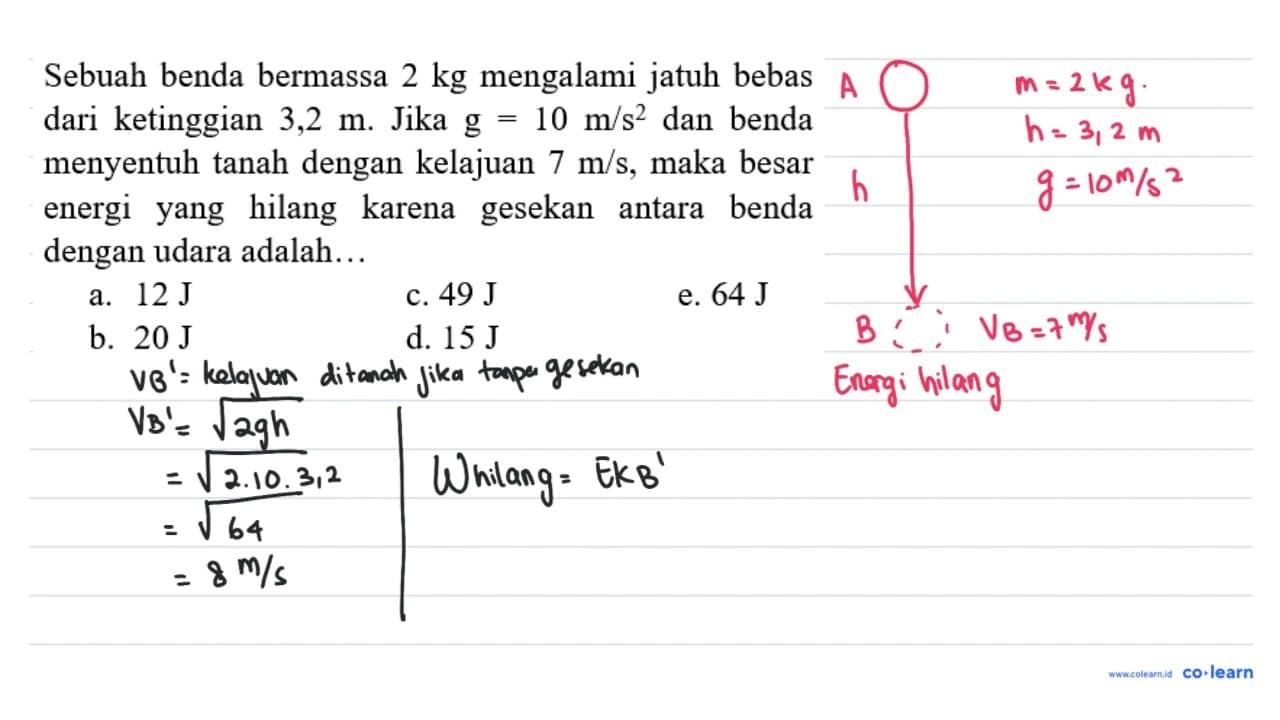 Sebuah benda bermassa 2 kg mengalami jatuh bebas
dari ketinggian 3,2 m. Jika g = 10 m/s² dan benda
menyentuh tanah dengan kelajuan 7 m/s, maka besar
energi yang hilang karena gesekan antara benda
dengan udara adalah…
a. 12 J c. 49 J e. 64 J
b. 20 J d. 15 J
A
m = 2 kg.
h = 3,2 m
g = 10 m/s²
h
B VB = 7 m/s
Energi hilang
VB' = kelajuan ditanah jika tanpa gesekan
VB' = √2gh
= √2.10.3,2
= √64
= 8 m/s
Whilang = EKB'
www.colearn.id co·learn